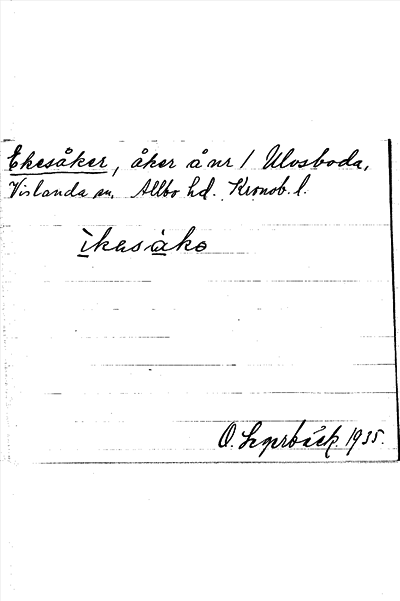 Ekesåker, åker å nr 1 Ulvsboda,
Vislanda sn, Allbo hd. Kronob. l.
ìkasàkə
O. 1935.